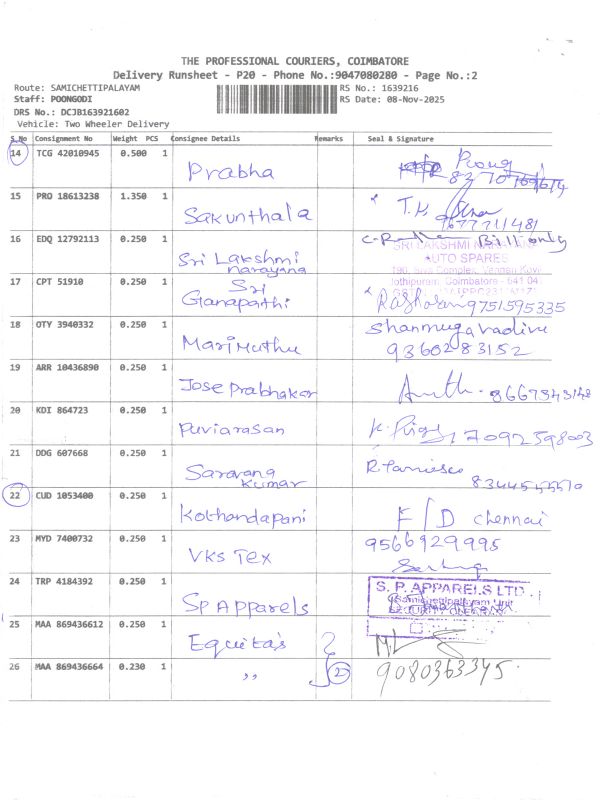 THE PROFESSIONAL COURIERS, COIMBATORE
Delivery Runsheet - P20 - Phone No.:9047080280 - Page No.:2
Route: SAMICHETTIPALAYAM RS No.: 1639216
Staff: POONGODI RS Date: 08-Nov-2025
DRS No.: DCJB163921602
Vehicle: Two Wheeler Delivery
S.No Consignment No Weight PCS Consignee Details Remarks Seal & Signature
14 TCG 42010945 0.500 1 Prabha
15 PRO 18613238 1.350 1 Sakunthala T.K
16 EDQ 12792113 0.250 1 Sri Lakshmi Narayana Bill only
SRI LAKSHMI
AUTO SPARES
17 CPT 51910 0.250 1 Sri Ganapathi 9751595335
18 OTY 3940332 0.250 1 Marimuthu Shanmugavadivu
9360283152
19 ARR 10436890 0.250 1 Jose Prabhakar
20 KDI 864723 0.250 1 Puviarasan 7092598003
21 DDG 607668 0.250 1 Saravana Kumar
22 CUD 1053400 0.250 1 Kothandapani F/D chennai
23 MYD 7400732 0.250 1 VKS Tex 9566929995
24 TRP 4184392 0.250 1 SP Apparels S. P. APPARELS LTD.,
Samichettipalayam Unit
25 MAA 869436612 0.250 1 Equitas
26 MAA 869436664 0.230 1 ,, 2 9080363345